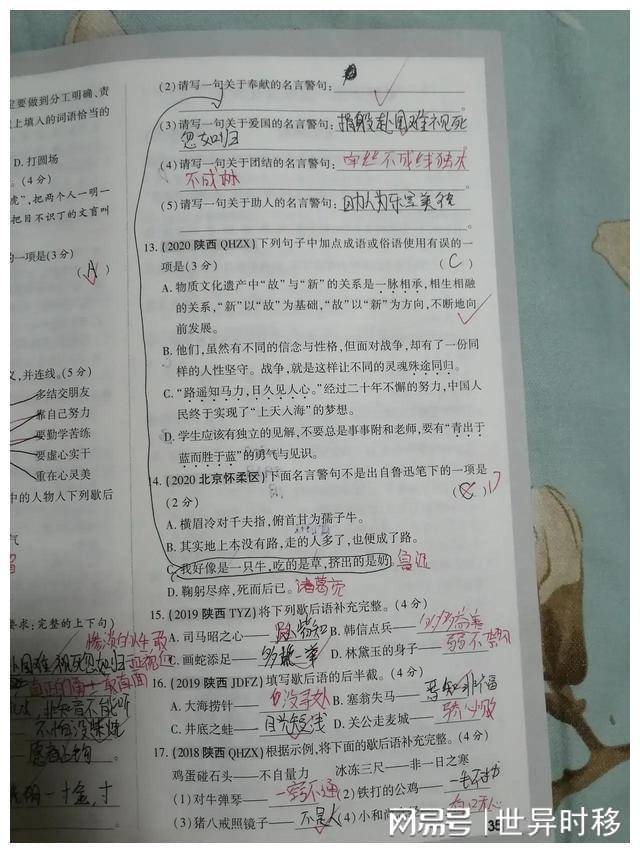 定要做到分工明确、责
上填入的词语恰当的
D. 打圆场
。(4分)
虎”,把两个人一明一
把目不识丁的文盲叫
的一项是(3分)
(A)
义,并连线。(5分)
多结交朋友
靠自己努力
要勤学苦练
要虚心实干
重在心灵美
中的人物人下列歇后
气
要求;完整的上下句)
真正的勇士敢直面
(2)请写一句关于奉献的名言警句:
(3)请写一句关于爱国的名言警句:捐躯赴国难视死
忽如归
(4)请写一句关于团结的名言警句:单丝不成线独木
不成林
(5)请写一句关于助人的名言警句:助人为乐 美德
13.(2020 陕西 QHZX)下列句子中加点成语或俗语使用有误的一
项是(3分) (C)
A. 物质文化遗产中“故”与“新”的关系是一脉相承,相生相融
的关系,“新”以“故”为基础,“故”以“新”为方向,不断地向
前发展。
B. 他们,虽然有不同的信念与性格,但面对战争,却有了一份同
样的人性坚守。战争,就是这样让不同的灵魂殊途同归。
C. “路遥知马力,日久见人心。”经过二十年不懈的努力,中国人
民终于实现了“上天入海”的梦想。
D. 学生应该有独立的见解,不要总是事事附和老师,要有“青出于
蓝而胜于蓝”的勇气与见识。
14.(2020 北京怀柔区)下面名言警句不是出自鲁迅笔下的一项是
(2分) D
A. 横眉冷对千夫指,俯首甘为孺子牛。
B. 其实地上本没有路,走的人多了,也便成了路。
C. 我好像是一只牛,吃的是草,挤出的是奶。鲁迅
D. 鞠躬尽瘁,死而后已。诸葛亮
15.(2019 陕西 TYZ)将下列歇后语补充完整。(4分)
A. 司马昭之心——路人皆知 B. 韩信点兵——多多益善
C. 画蛇添足——多此一举 D. 林黛玉的身子——弱不禁风
16.(2019 陕西 JDFZ)填写歇后语的后半截。(4分)
A. 大海捞针—— 没寻处 B. 塞翁失马——焉知非福
C. 井底之蛙——目光短浅 D. 关公走麦城——骄必败
17.(2018 陕西 QHZX)根据示例,将下面的歇后语补充完整。(4分)
鸡蛋碰石头——不自量力 冰冻三尺——非一日之寒
(1)对牛弹琴——一窍不通 (2)铁打的公鸡——一毛不拔
(3)猪八戒照镜子——不是人 (4)小和尚
35
网易号 | 世异时移